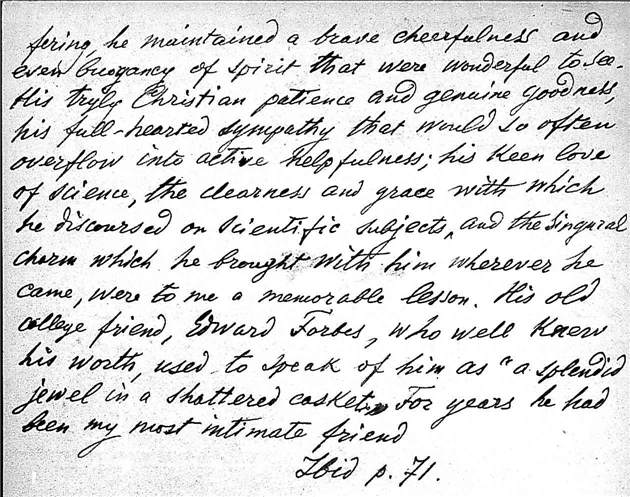 fering, he maintained a brave cheerfulness and
even buoyancy of spirit that were wonderful to see.
His truly Christian patience and genuine goodness,
his full-hearted sympathy that would so often
overflow into active helpfulness; his keen love
of science, the clearness and grace with which
he discoursed on scientific subjects, and the singural
charm which he brought with him wherever he
came, were to me a memorable lesson. His old
college friend, Edward Forbes, who well knew
his worth, used to speak of him as "a splendid
jewel in a shattered casket." For years he had
been my most intimate friend
Ibid p. 71.